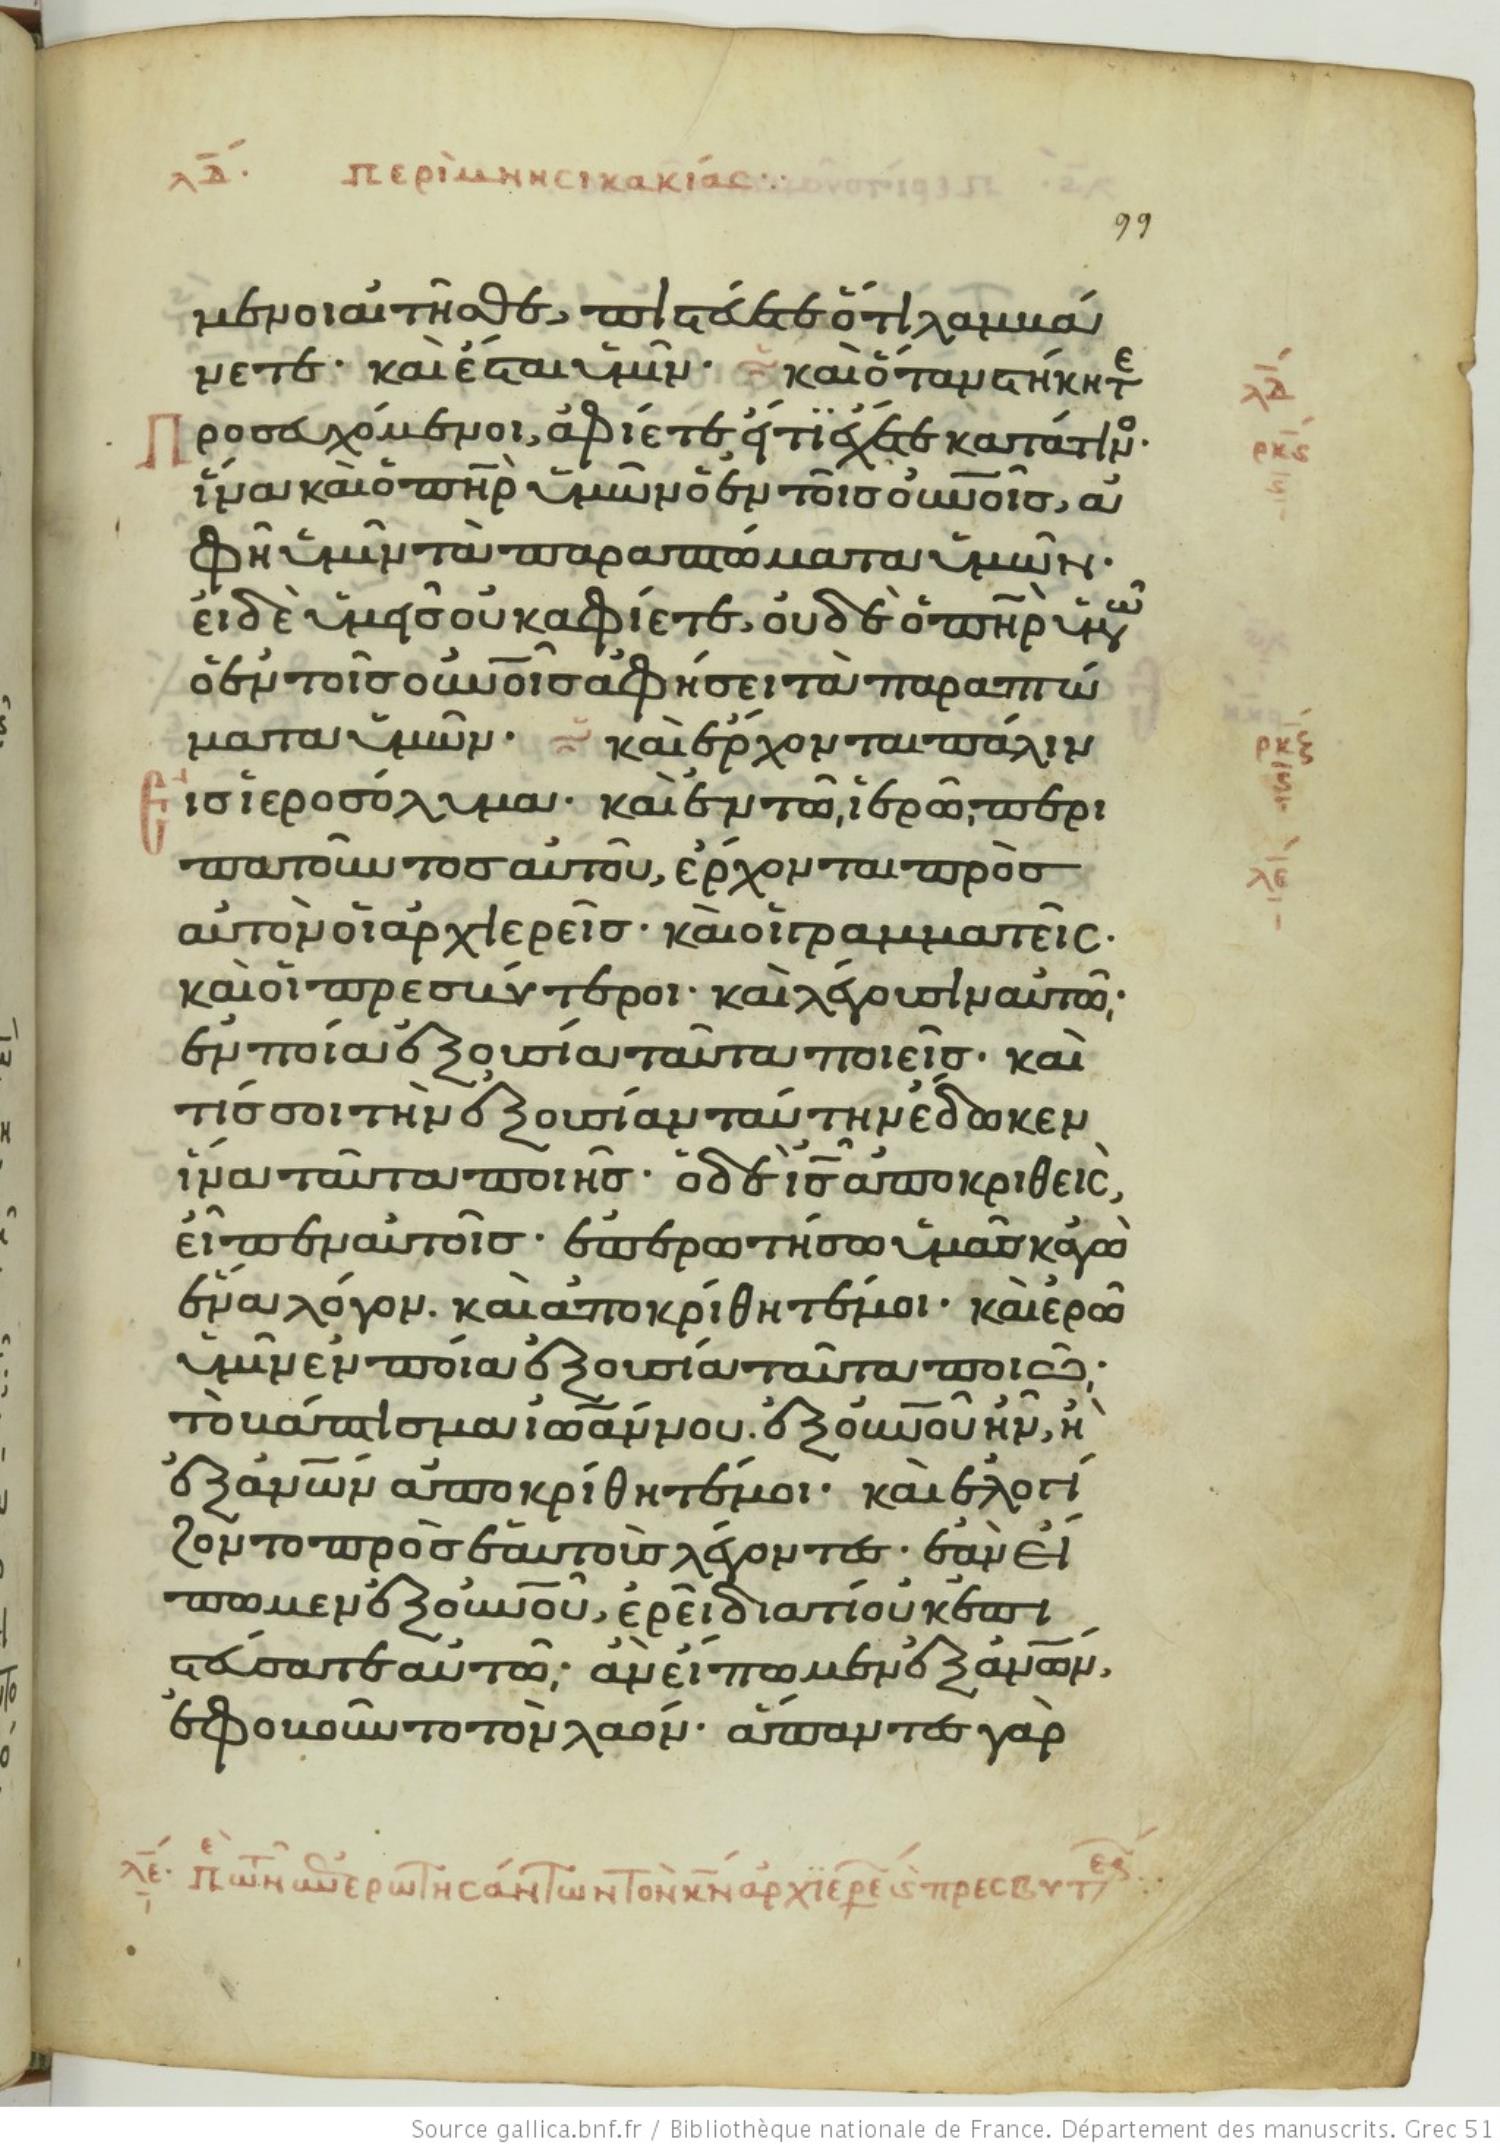 λδ. περὶ μνησικακίας··
99
μενοι αἰτῆσθε, πιστεύετε ὅτι λαμβά
νετε· καὶ ἔσται ὑμῖν· καὶ ὅταν στήκητε
Προσευχόμενοι, ἀφίετε εἴ τι ἔχετε κατά τινος·
ἵνα καὶ ὁ πηρ ὑμῶν ὁ ἐν τοῖς οὐνοῖς, α
φῆ ὑμῖν τὰ παραπτώματα ὑμῶν·
εἰ δὲ ὑμεῖς οὐκ αφίετε, οὐδὲ ὁ πηρ ὑμῶν
ὁ ἐν τοῖς οὐνοῖς αφήσει τὰ παραπτώ
ματα ὑμῶν· καὶ ἔρχονται πάλιν
Εἰς ἱεροσόλυμα· καὶ ἐν τῶ ἱερῶ, περι
πατοῦντος αὐτοῦ, ἔρχονται πρὸς
αὐτὸν οἱ ἀρχιερεῖς· καὶ οἱ γραμματεῖς·
καὶ οἱ πρεσβύτεροι· καὶ λέγουσιν αὐτῶ;
ἐν ποία ἐξουσία ταῦτα ποιεῖς· καὶ
τίς σοι τὴν ἐξουσίαν ταύτην ἔδωκεν
ἵνα ταῦτα ποιῆς· ὁ δὲ ις ἀποκριθεὶς,
εἶπεν αὐτοῖς· ἐπερωτήσω ὑμᾶς καγὼ
ἕνα λόγον. καὶ ἀποκρίθητέ μοι· καὶ ἐρῶ
ὑμῖν ἐν ποία ἐξουσία ταῦτα ποιῶ;
τὸ βάπτισμα ιωάννου. ἐξ οὐνοῦ ἦν, ἢ
ἐξ ἀνων ἀποκρίθητέ μοι· καὶ ἐλογί
ζοντο πρὸς ἑαυτοὺς λέγοντες· ἐὰν εἴ
πωμεν ἐξ οὐνοῦ, ἐρεῖ διατί οὐκ ἐπι
στεύσατε αὐτῶ; ἀλλ εἴπωμεν ἐξ ἀνων,
ἐφοβοῦντο τὸν λαόν· ἅπαντες γὰρ
λδ
ρκς
ς
ρκζ
λε
λε·